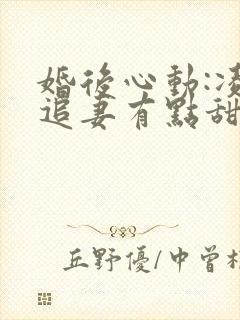 婚後心動:凌
追妻有點甜
丘野優/中曾根